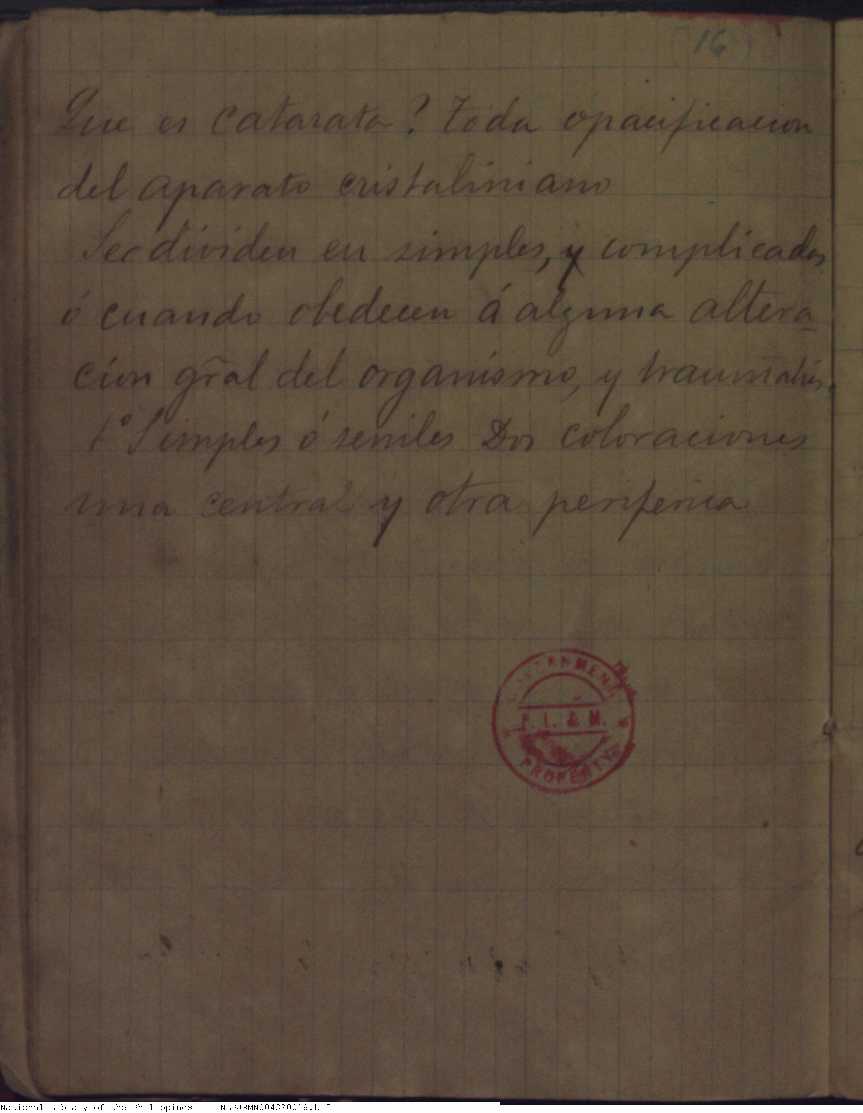 16
Que es catarata? Toda opacificacion
del aparato cristaliniano
Se dividen en simples, y complicadas
ó cuando obedecen á alguna altera_
cion gr̃al del organismo, y
1° Simples ó seniles Dos coloraciones
una central y otra periferica
GOVERNMENT
P. L. & M.
PROPERTY
National Library of the Philippines